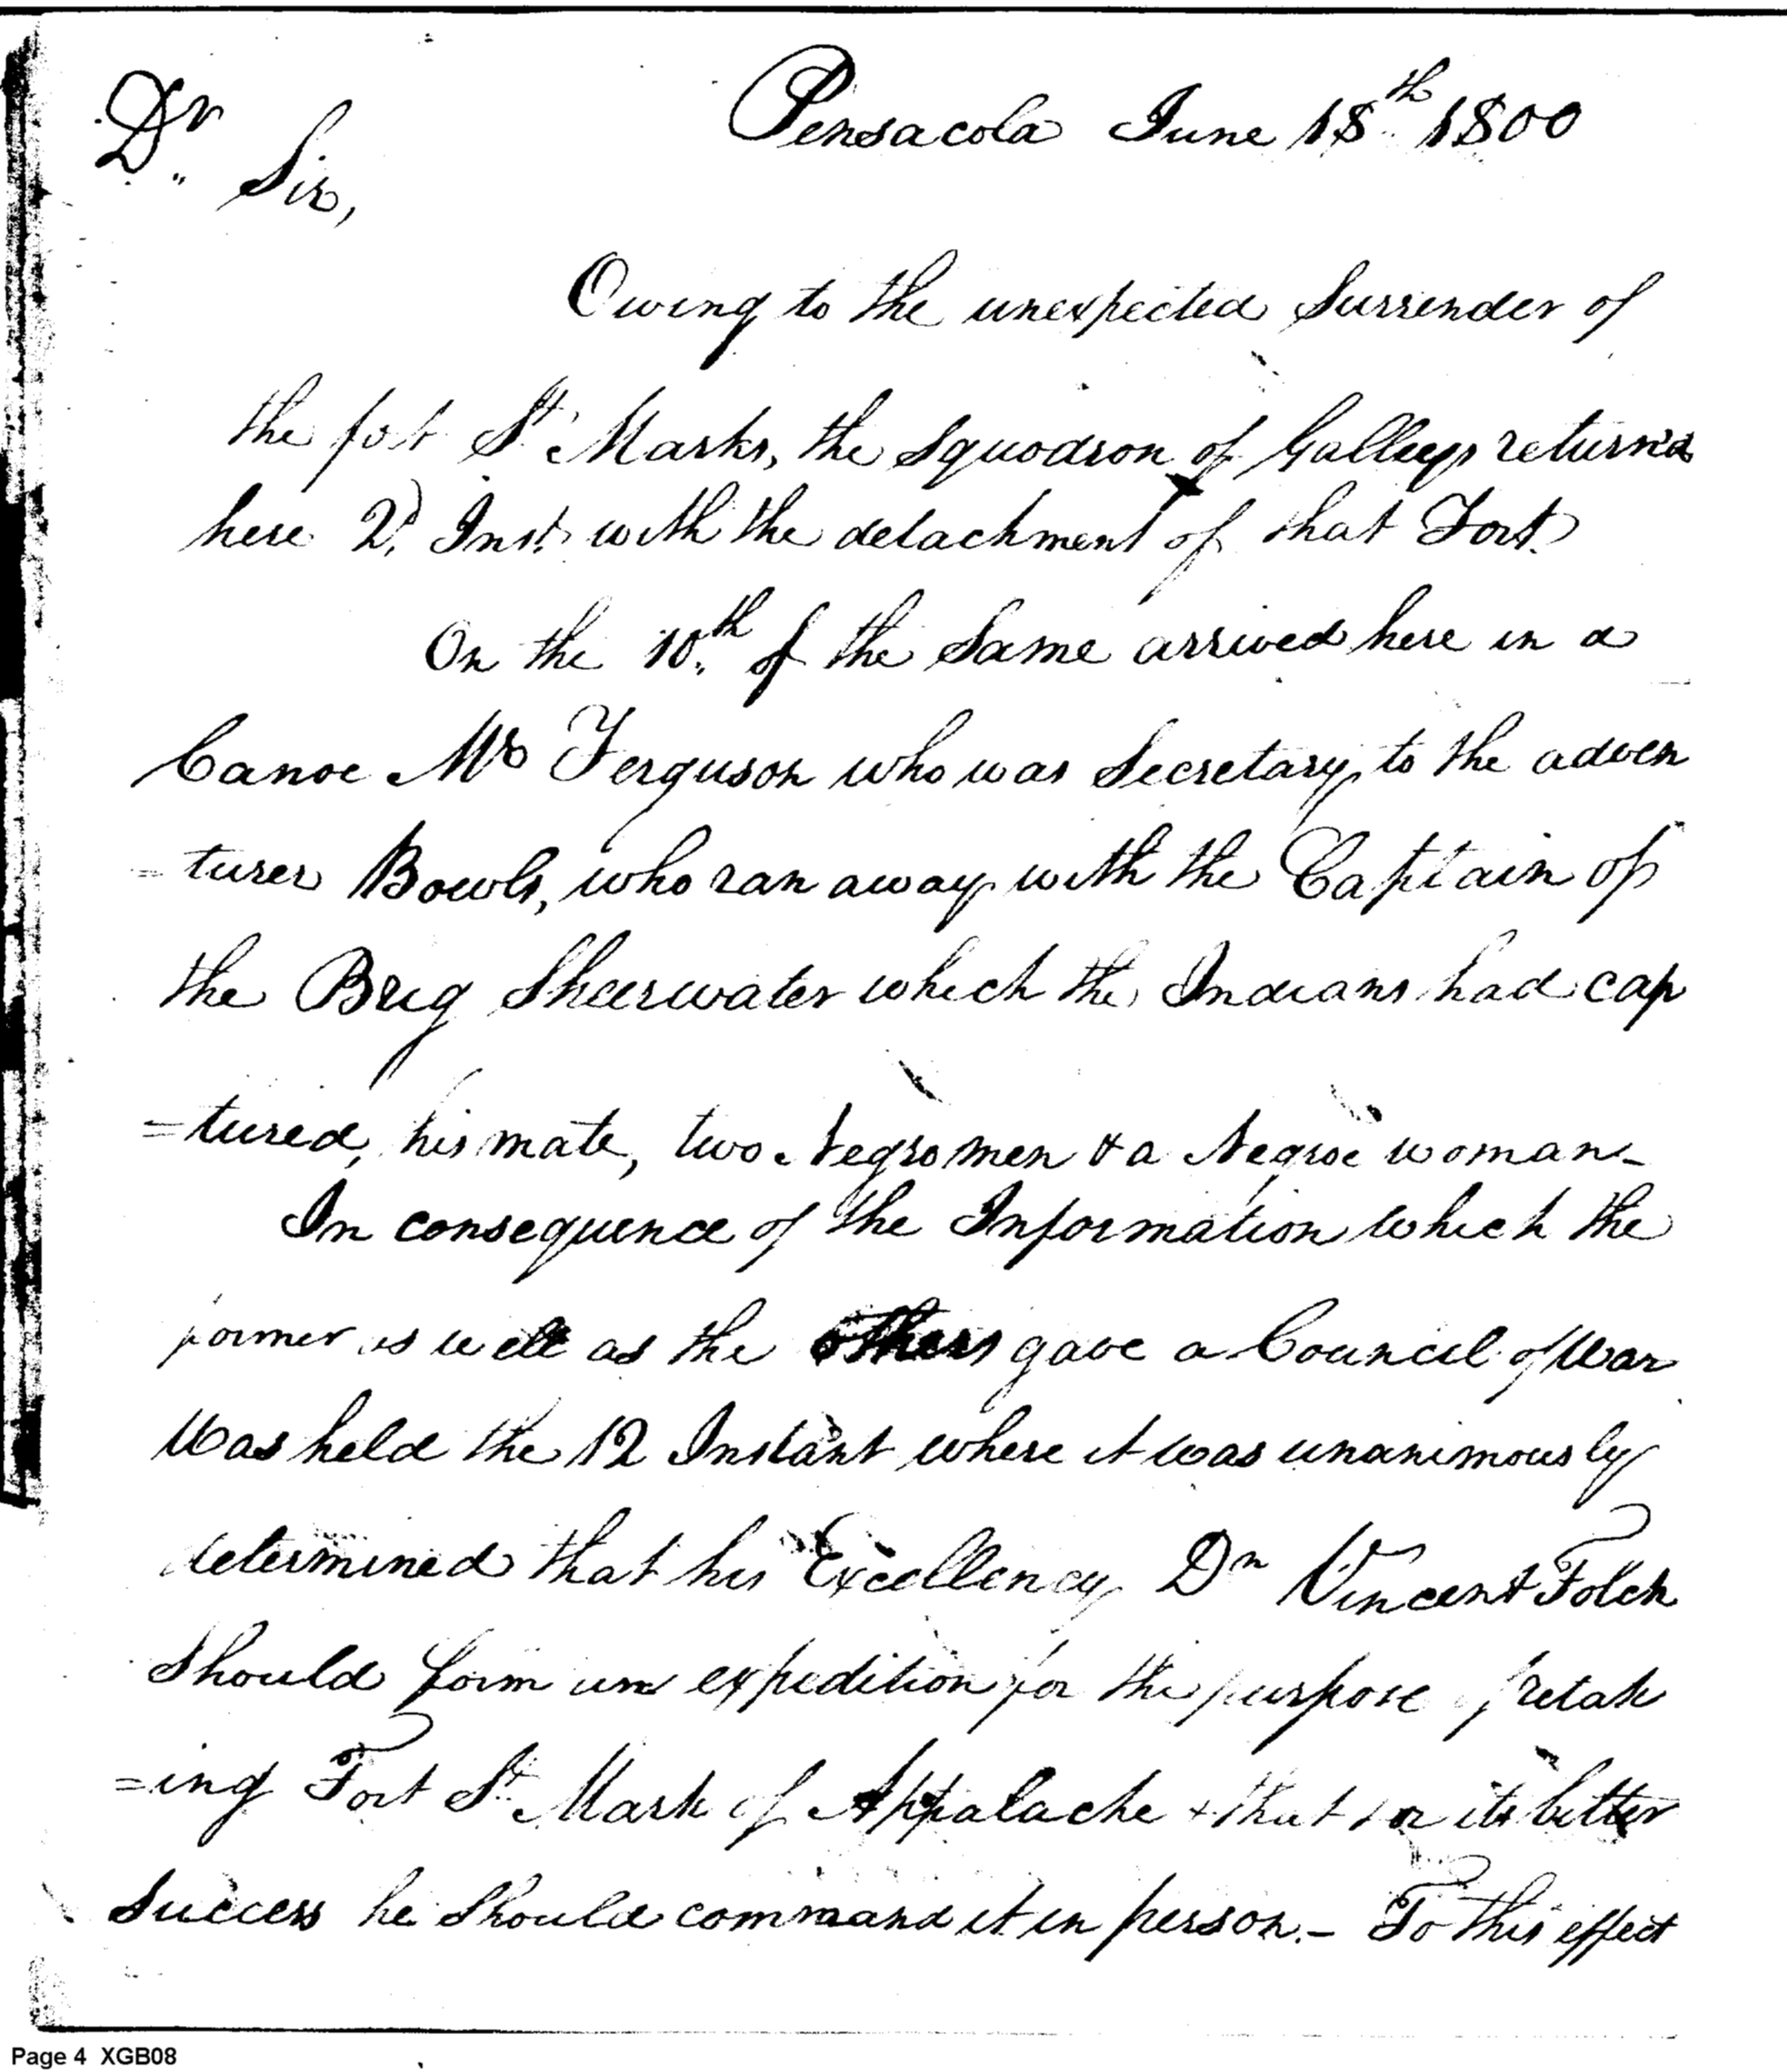 Pensacola June 18th 1800
Dr. Sir,
Owing to the unexpected Surrender of
the fort St Marks, the Squadron of Galleys return'd
here 2d. Inst. with the detachment of that Fort.
On the 10th of the Same arrived here in a
Canoe Mr Ferguson who was Secretary to the adven
=turer Bowls, who ran away with the Captain of
the Brig Sheerwater which the Indians had cap
=tured, his mate, two Negro men & a Negroe woman-
In consequence of the Information which the
former as well as the others gave a Council of War
Was held the 12 Instant where it was unanimously
determined that his Excellency Dn Vincent Folch
Should form an expedition for the purpose of retak
=ing Fort St Mark of Appalache & that for its better
Success he Should command it in person.- To this effect
Page 4 XGB08